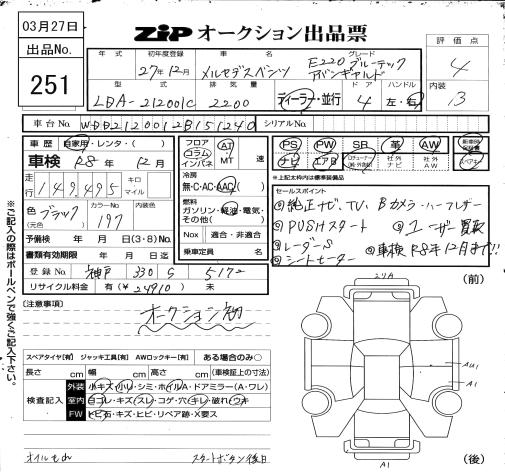 03月27日
ZIP オークション出品票
出品No.
251
年式 初年度登録 車名 グレード
27年12月 メルセデスベンツ E220ブルーテック
アバンギャルド
評価点
4
型式 排気量 ドア ハンドル
LDA-212001C 2200 ディーラー・並行 4 左・右
内装
B
車台No. WDD2120012B151240 シリアルNo.
車歴 自家用・レンタ・( )
車検 R8年 12月
走行 149,495 キロ マイル
色(元色) ブラック カラーNo. 197 内装色
予備検 年 月 日(3・8)No.
書類有効期限 年 月 日迄
登録No. 神戸 330 5172
リサイクル料金 有(¥24910) 未
フロア コラム インパネ AT・MT 速
冷房
無・C・AC・AAC( )
燃料
ガソリン・軽油・電気・
その他( )
Nox 適合・非適合
乗車定員 名
PS PW SR 革 AW
ナビ エアB 社外ナビ 社外AW
*上記太枠内は標準装備品
セールスポイント
純正ナビ、TV、Bカメラ・ハーフレザー
PUSHスタート ユーザー買取
レーダーS 車検R8年12月まで!!
シートヒーター
[注意事項]
オークション初
スペアタイヤ[有] ジャッキ工具[有] AWロックキー[有] ある場合のみ○
長さ cm 幅 cm 高さ cm (車検証上の寸法)
検査記入
外装 小キズ・小凹・シミ・ホイル・ドアミラー(A・ワレ)
室内 ヨゴレ・キズ・スレ・コゲ・穴・キレ・破れ・ウキ
FW トビ石・キズ・ヒビ・リペア跡・X要ス
スタートボタン後日
(前)
AU1
A1
A1
(後)
※ご記入の際はボールペンで強くご記入下さい。